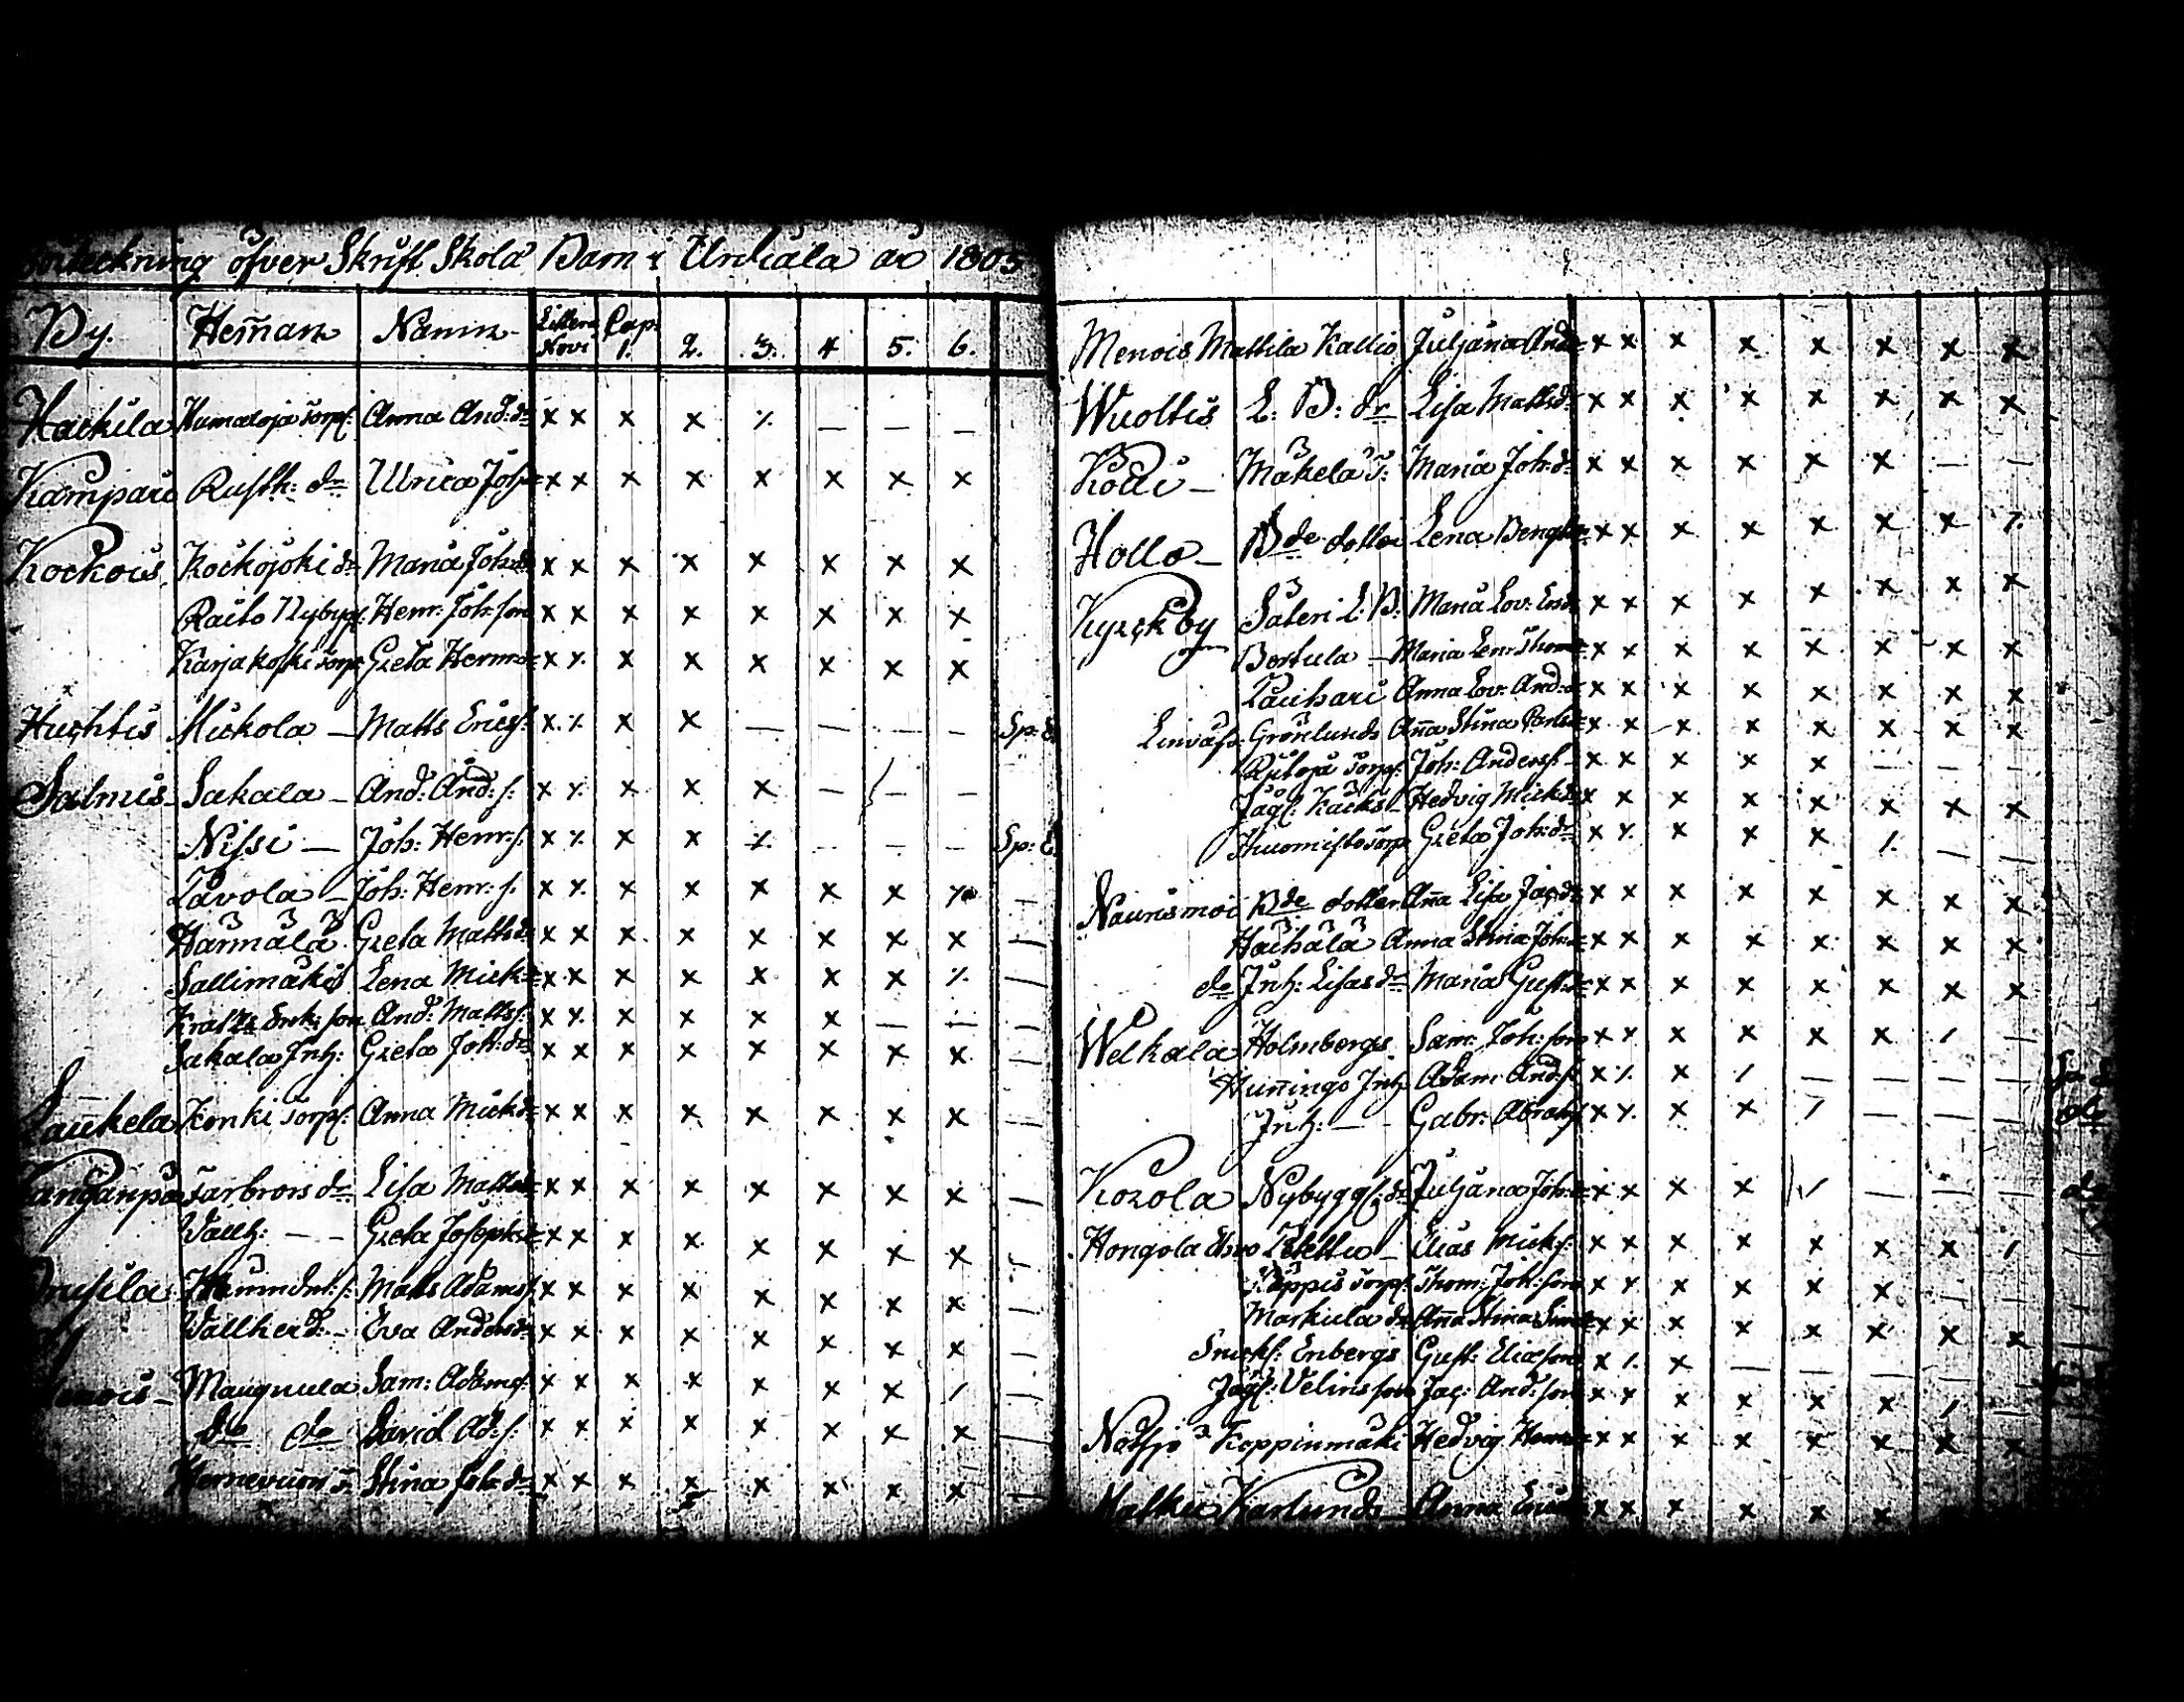 Förteckning öfver Skrift Skola Barn i Urdiala år 1805
By. Hem̄an Namn Littera Novi Cap: 1. 2. 3. 4 5. 6.
Hackila Humaloja Torp: Anna And:dr x x x x ⁒ — — —
Kampari Rusth: dr Ulrica Joh: x x x x x x x x
Kockois Kockojoki dr Maria Joh:dr x x x x x x x x
Raito Nybygg: Henr: Joh:son x x x x x x x x
Karjakoski Torp: Greta Henr:dr x ⁒ x x x x x x
Huchtis Mickola — Matts Erics: x ⁒ x x — — — — Sp:
Salmis Sakala — And: And: s: x ⁒ x x x — — —
Nissi — Joh: Henr: s: x ⁒ x x ⁒ — — — Sp:
Tavola — Joh: Henr: s. x ⁒ x x x x x ⁒ —
Härmälä Greta Matts dr x x x x x x x x —
Sallimäki Lena Mick: x x x x x x x ⁒ —
Enk: son And: Matts s: x ⁒ x x x — — —
Sakala Inh: Greta Joh:dr x x x x x x x x —
Laukela Konki Torp: Anna Mick:dr x x x x x x x x —
Kanganpä Farbrors dr Lisa Matts x x x x x x x x —
Vallh: — — Greta Josephs x x x x x x x x —
Matts Adams: x x x x x x x x —
Vallherd: — Eva Anders x x x x x x x x —
Menois — Maugnula Sam: Adams: x x x x x x x / —
do do David Ad: s: x x x x x x x x —
Stina Joh: dr x x x x x x x x —
Menois Mattila Kallio Juljana And: x x x x x x x x
Wuoltis L: B: dr Lisa Matts dr x x x x x x x x
Kodi — Mäkelä T: Maria Joh:dr x x x x x x — —
Hollo — Bde dotter Lena Bengts x x x x x x x ⁒
Kyrckby Säteri L: B: Maria Lov: x x x x x x x x
Bortula — Maria Len: Thom: x x x x x x x x
Lauhari Anna Lov: And: x x x x x x x x
Grönlunds An̄a Stina x x x x x x x x
Torp: Joh: Anders: x x x x x — — —
Jäg: Hedvig Micks x x x x x x x x
Huomisto Torp: Greta Joh:dr x ⁒ x x x ⁒ — —
Naurismoi Bde dotter An̄a Lisa Jac: x x x x x x x x
Hachala Anna Stina Joh: x x x x x x x x
do Inh: Lisas dr Maria Gust: x x x x x x x x
Welkala Holmbergs Sam: Joh: son x x x x x x / —
Hun̄ingo Inh: Adam And: x ⁒ x / — — — —
Inh: — — Gabr: Abrah: x ⁒ x x / — — — do
Kozola Nybygg: dr Juljana Joh: x x x x / — — — do
Hongola Uhro — Elias Mick: x x x x x x x / —
Torp: Thom: Joh: son x x x x x x — —
Markula dr An̄a Stina x x x x x x x x
Enbergs Gust: Eliæ son x ⁒ x — — — — —
Jäg: Velins son Jac: And: son x x x x x x / —
Koppinmäki Hedvig Henr: x x x x x x x x
Anna x x x x x x